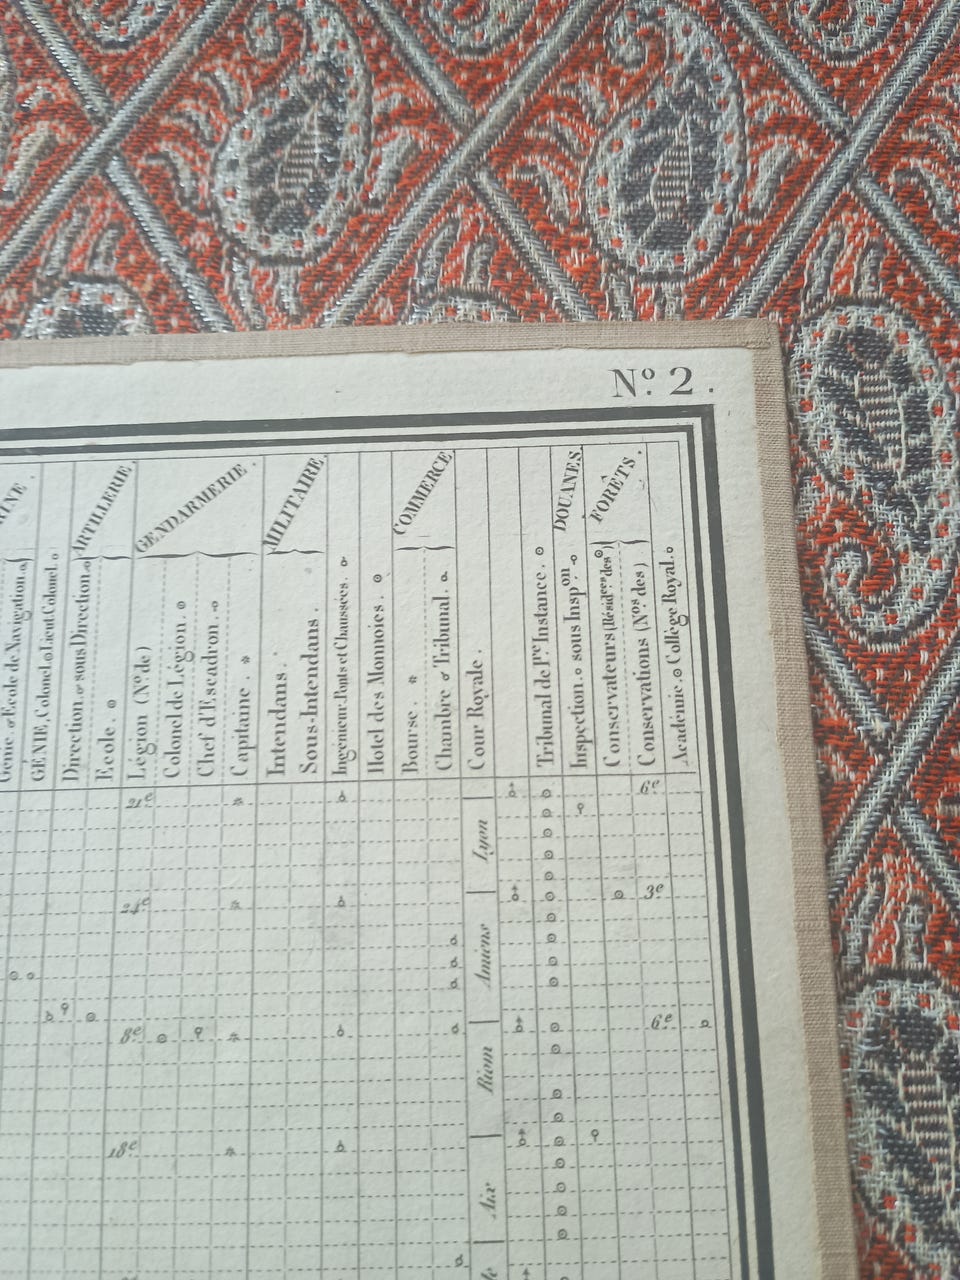 Nº. 2.
ARTILLERIE.
GENDARMERIE.
MILITAIRE.
COMMERCE
DOUANES.
FORÊTS.
Génie. Ecole de Navigation.
GÉNIE, Colonel. Lieut. Colonel.
Direction. sous Direction.
Ecole.
Légion (Nº. de)
Colonel de Légion.
Chef d'Escadron.
Capitaine. *
Intendans.
Sous-Intendans.
Ingénieur. Ponts et Chaussées.
Hotel des Monnoies.
Bourse. *
Chambre Tribunal.
Cour Royale.
Tribunal de Pre. Instance.
Inspection. sous Inspon.
Conservateurs (Résidces des)
Conservations (Nos des)
Académie. Collège Royal.
21e * 6e
Lyon
24e * 3e
Amiens
8e * 6e
Riom
18e *
Aix